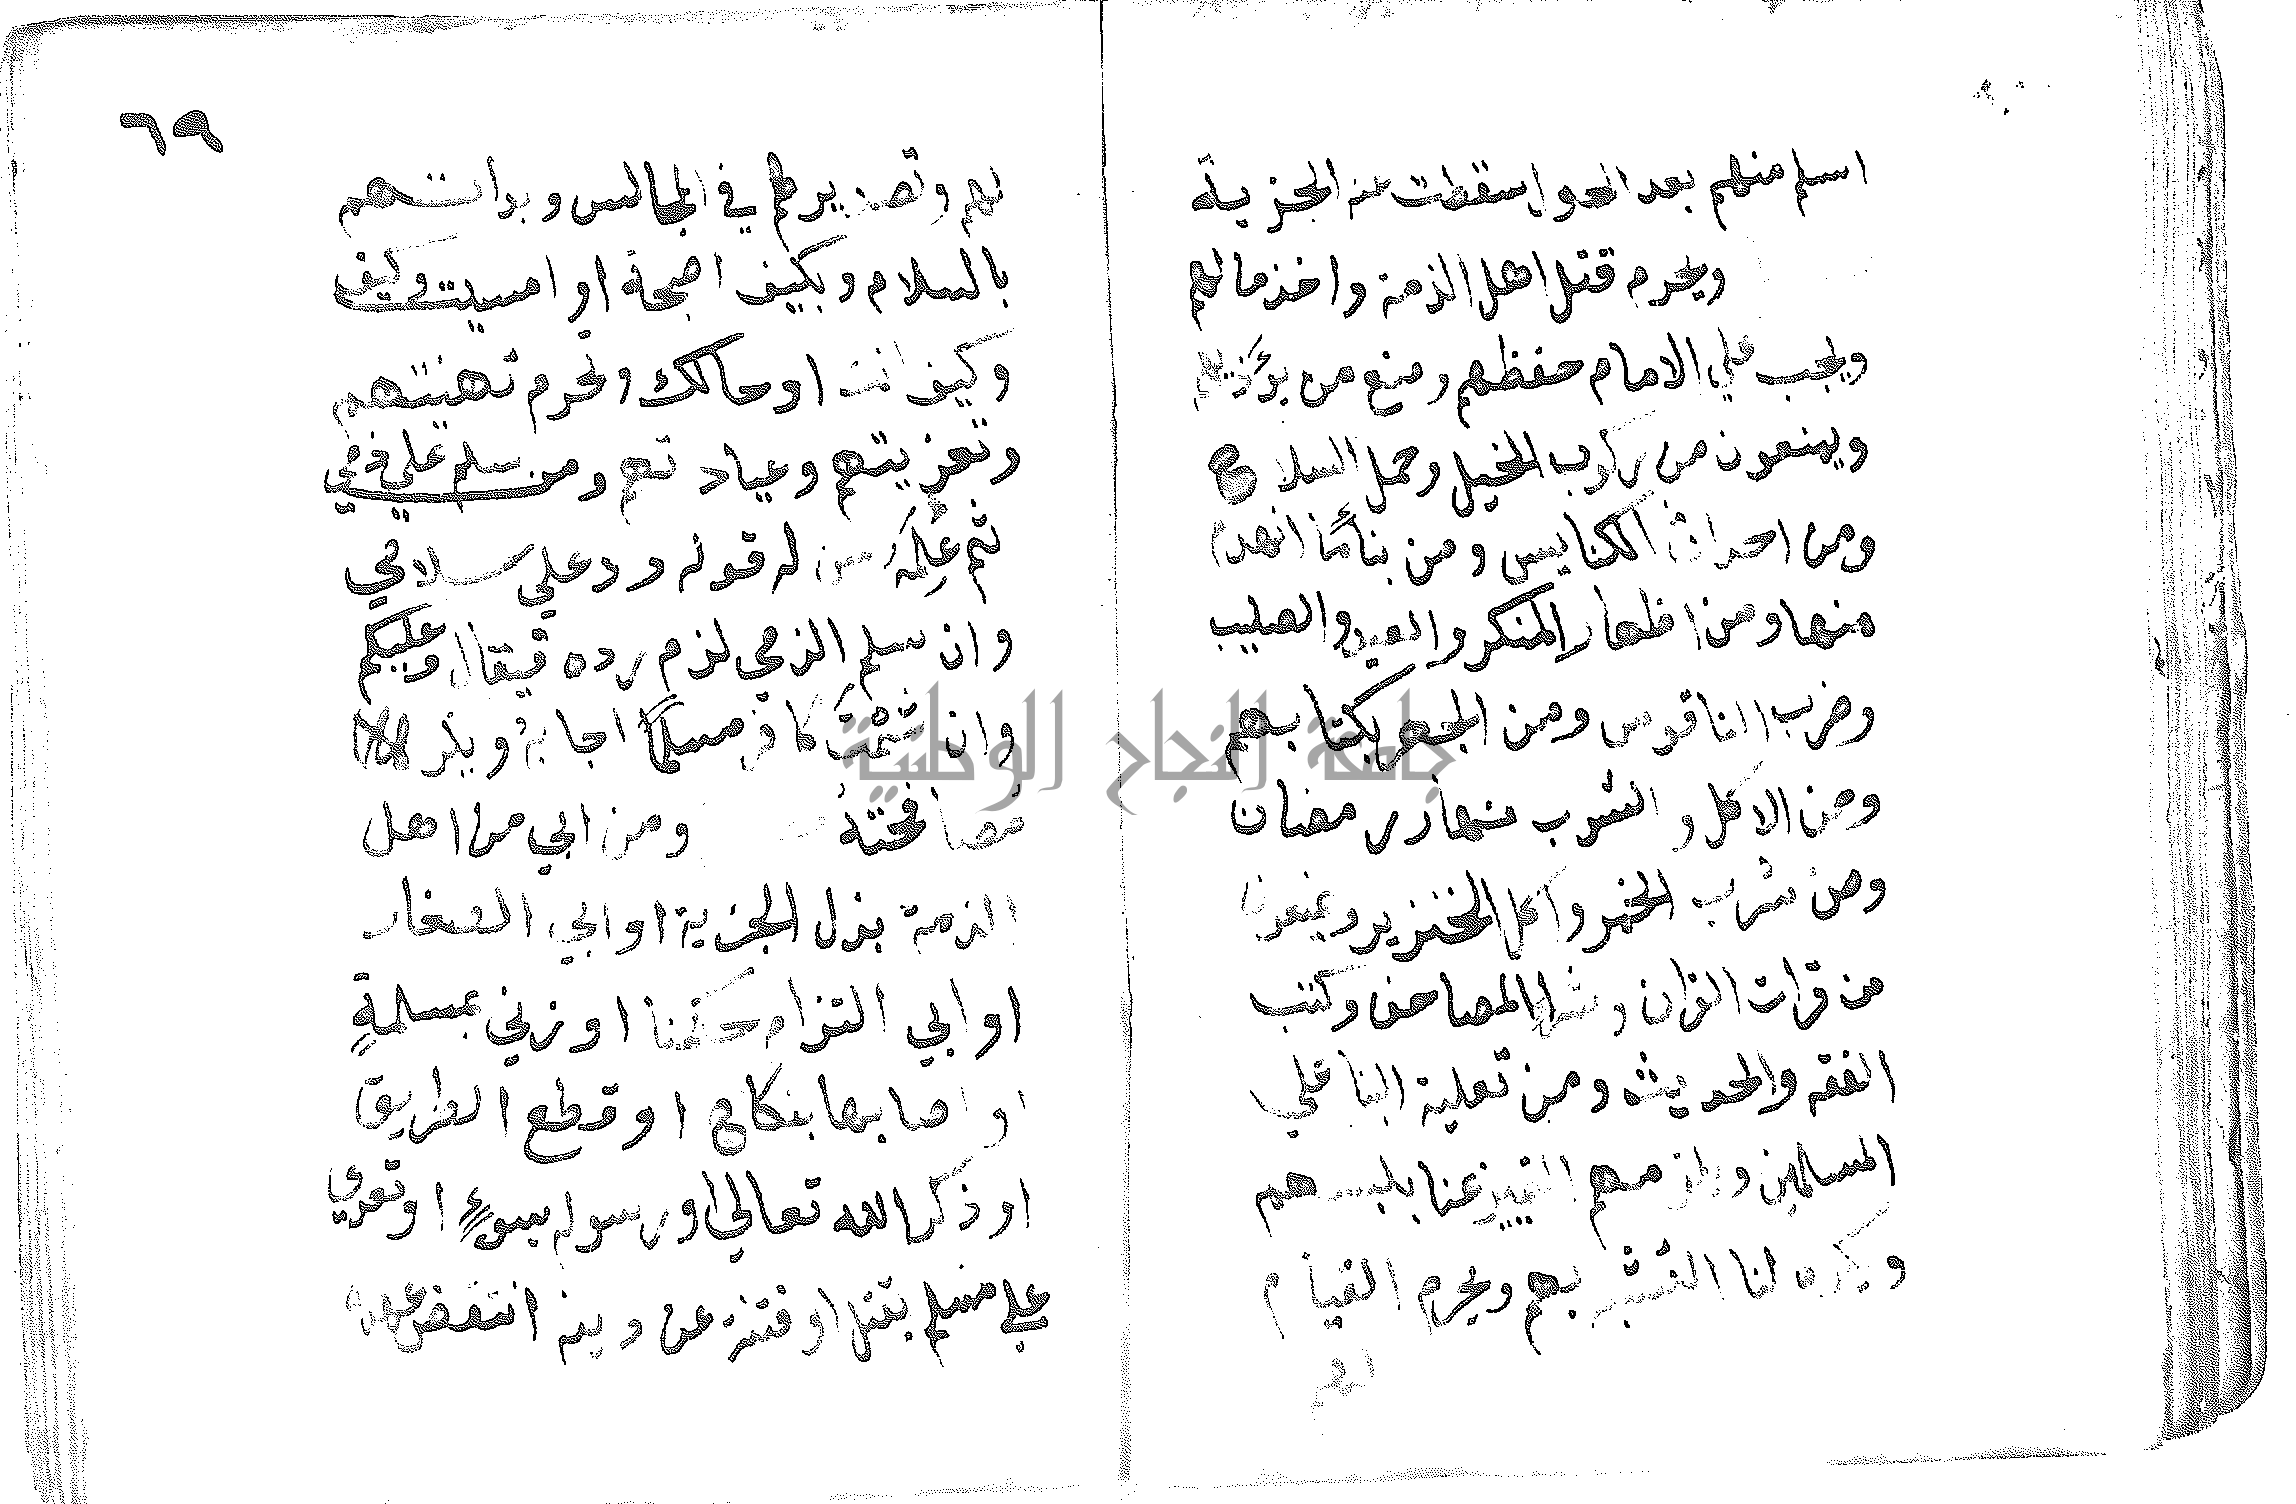 اسلم منهم بعد الحول سقطت عنه الجزية
ويحرم قتل اهل الذمة واخذ مالهم
ويجب علي الامام حفظهم ومنع من يؤذيهم
ويمنعون من ركوب الخيل وحمل السلاح
ومن احداث الكنايس ومن بنا ما انهدم
منها ومن اظهار المنكر والعيد والصليب
وضرب الناقوس ومن الجهر بكتابهم
ومن الاكل والشرب نهار رمضان
ومن شرب الخمر واكل الخنزير ويمنعون
من قرات القران وشرا المصاحف وكتب
الفقه والحديث ومن تعلية البنا علي
المسلمين ويلزمهم التمييز عنا بلبسهم
ويكره لنا التشبه بهم ويحرم القيام
لهم
٦٩
لهم وتصديرهم في المجالس وبدأتهم
بالسلام وبكيف اصبحة او امسيت وكيف
وكيف انت او حالك وتحرم تهنئتهم
وتعزيتهم وعيادتهم ومن سلم علي ذمي
ثم عَلِمَهُ سن له قوله رد علي سلامي
وان سلم الذمي لزم رده فيقال وعليكم
وان شَمَّتَ كافر مسلمًا اجابه ويكره
مصافحته ومن ابي من اهل
الذمة بذل الجزية او ابي الصغار
او ابي التزام حكمنا او زني بمسلمةٍ
او اصابها بنكاح او قطع الطريق
او ذكر الله تعالي او رسوله بسوءٍ او تعدي
علي مسلم بقتل او فتنة عن دينه انتقض عهده
جامعة النجاح الوطنية